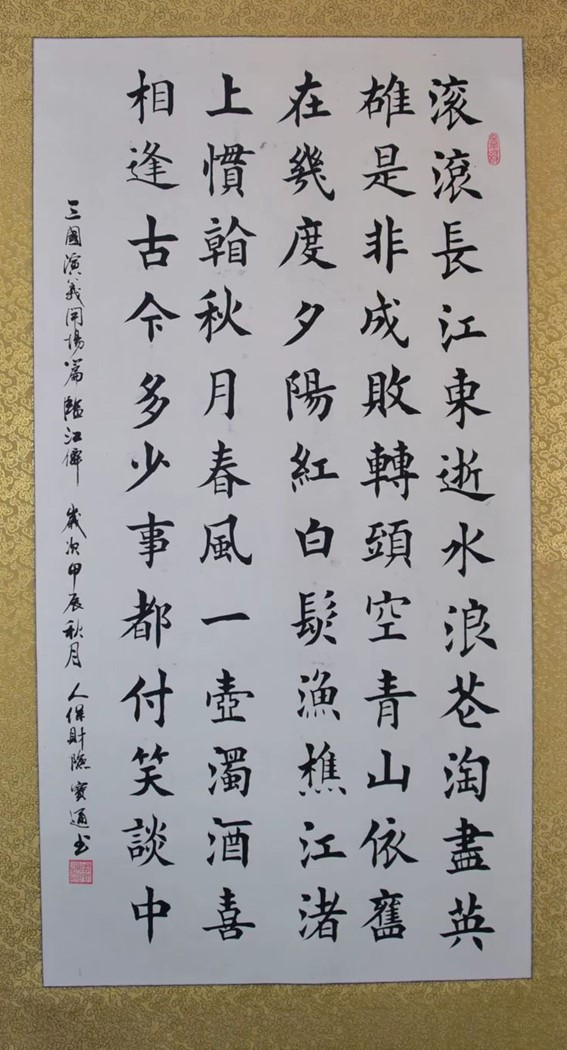 滚滾長江東逝水浪花淘盡英
雄是非成敗轉頭空青山依舊
在幾度夕陽紅白髮漁樵江渚
上慣看秋月春風一壺濁酒喜
相逢古今多少事都付笑談中
三國演義開場篇臨江僊 歲次甲辰秋月 人保財險寶通书